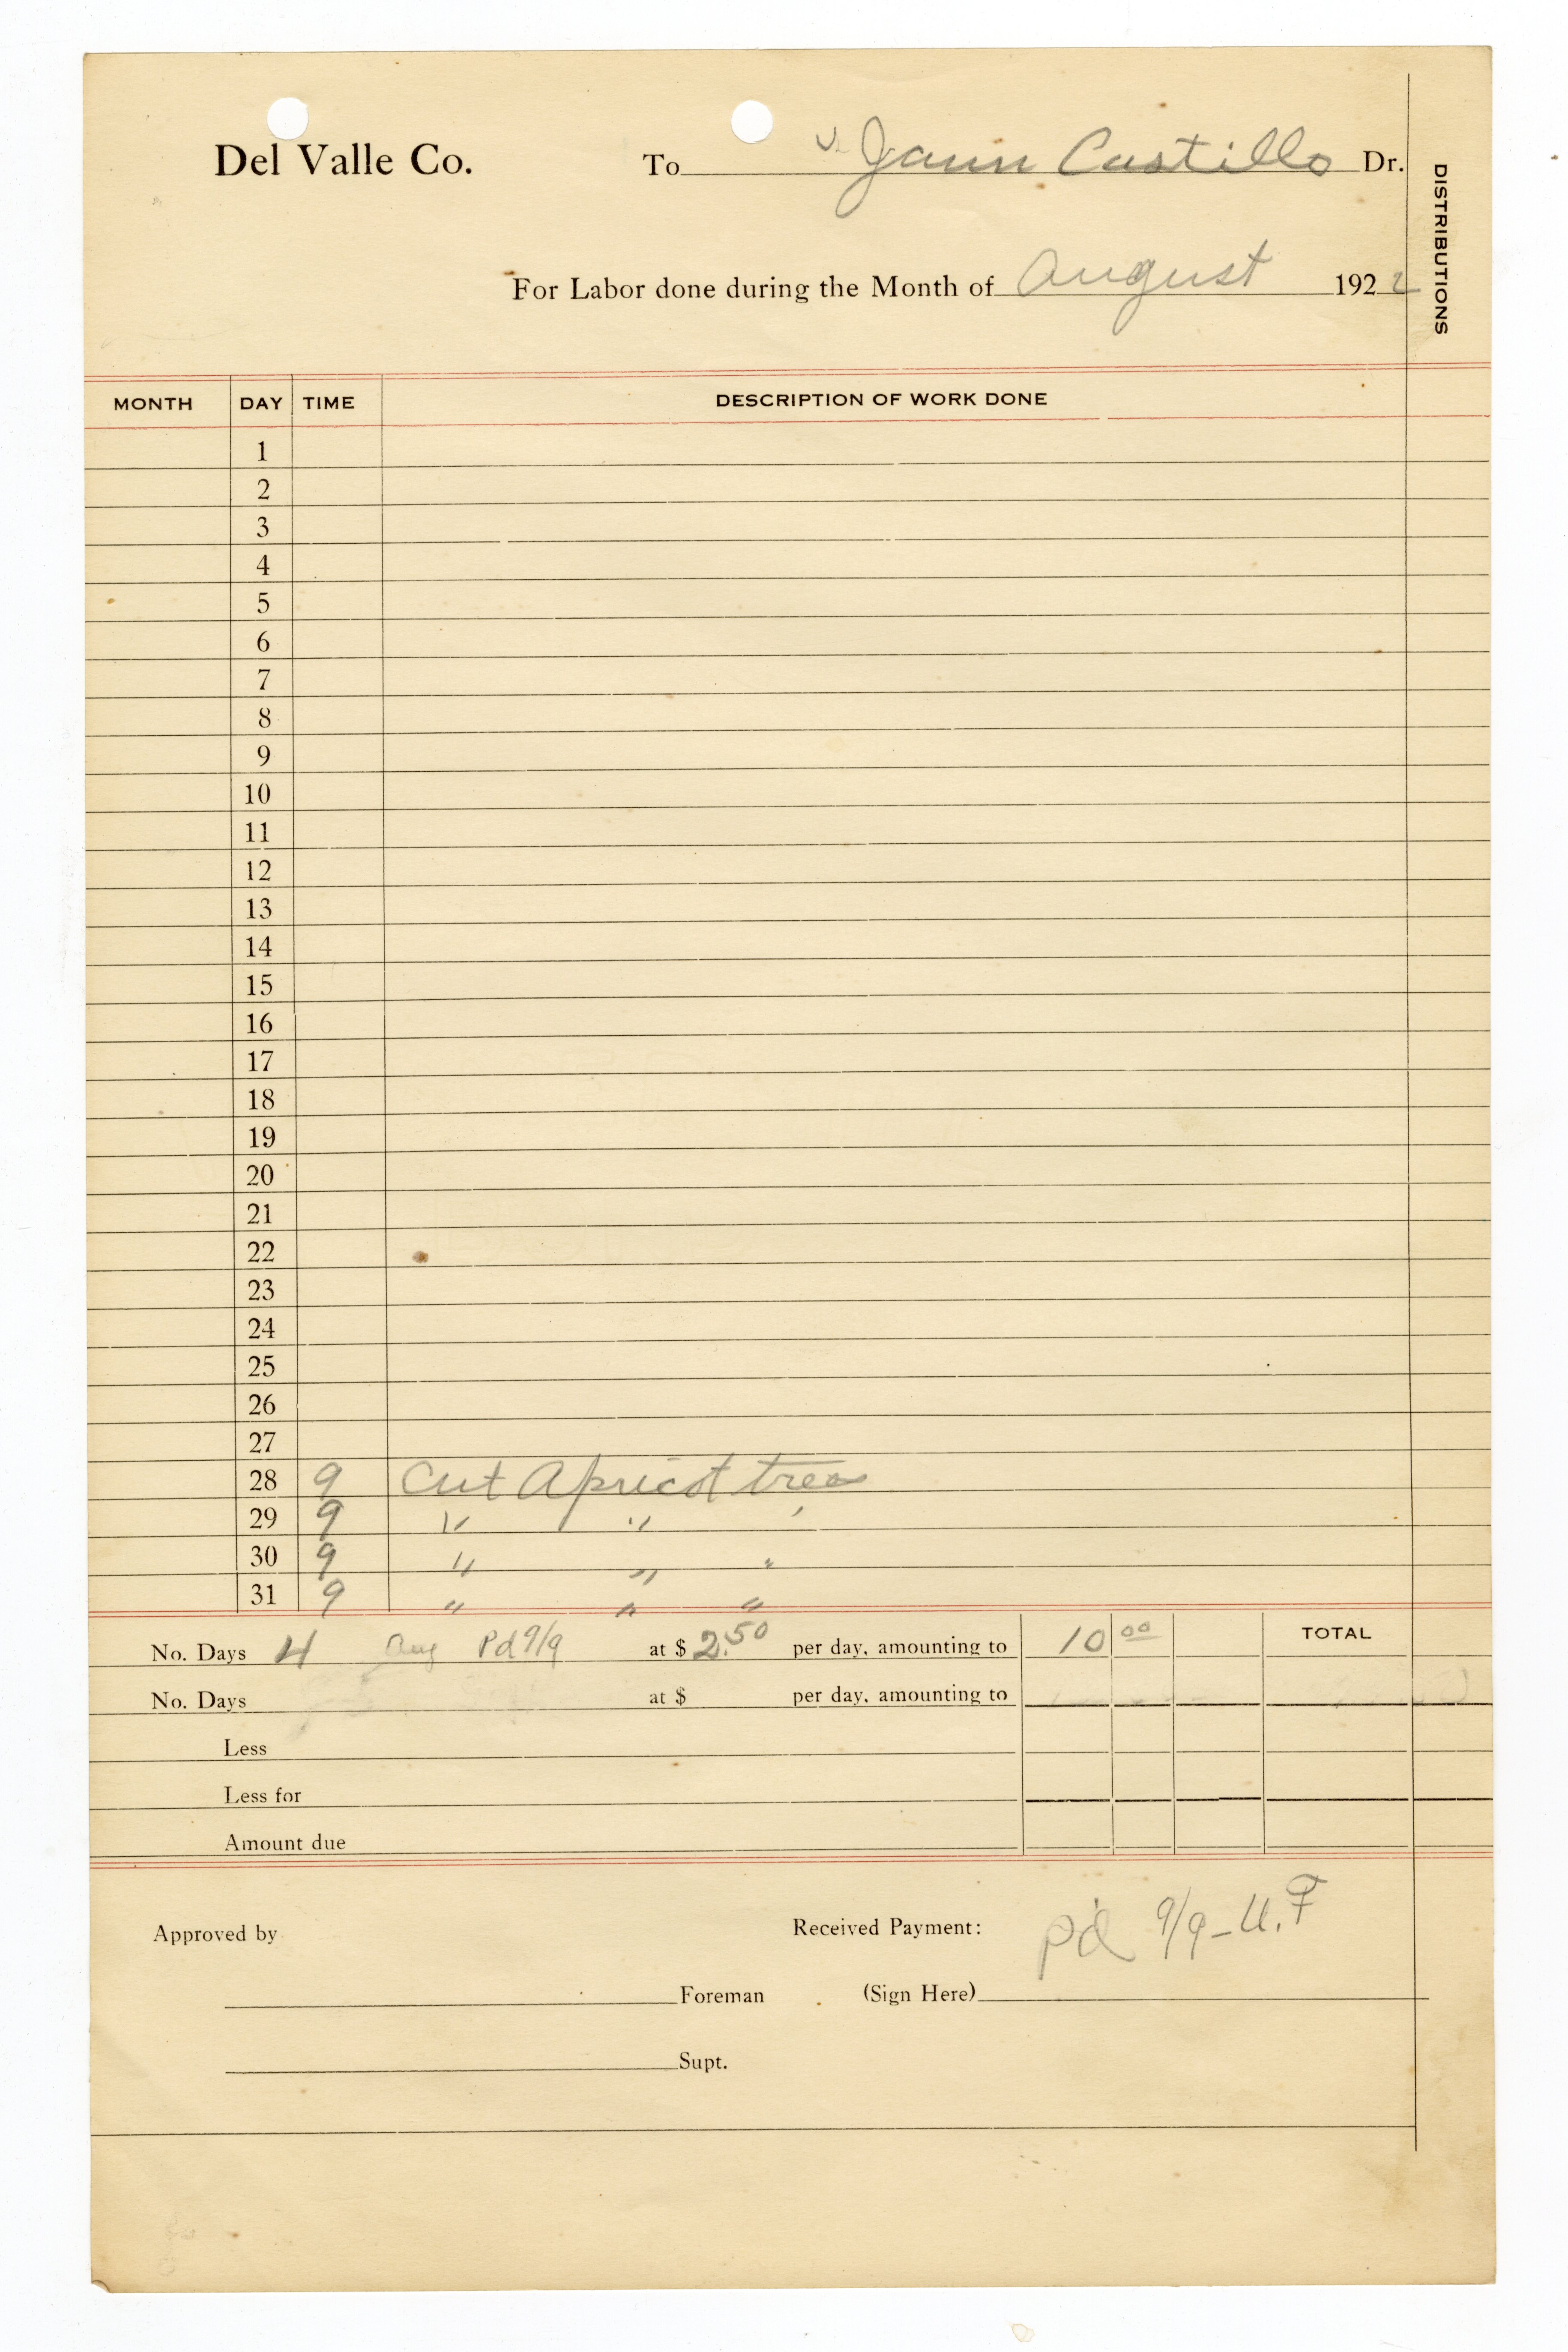 Del Valle Co. To Jaun Castillo Dr.
DISTRIBUTIONS
For Labor done during the Month of August 1922
MONTH DAY TIME DESCRIPTION OF WORK DONE
1
2
3
4
5
6
7
8
9
10
11
12
13
14
15
16
17
18
19
20
21
22
23
24
25
26
27
28 9 Cut Apricot trees
29 9 " " "
30 9 " " "
31 9 " " "
No. Days 4 Aug Pd 9/9 at $ 2.50 per day, amounting to 10 00 TOTAL
No. Days at $ per day, amounting to
Less
Less for
Amount due
Approved by Received Payment: Pd 9/9 - U.F
Foreman (Sign Here)
Supt.